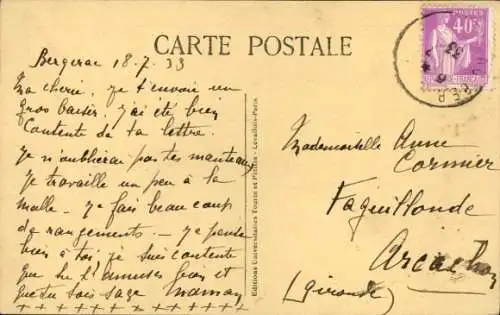 CARTE POSTALE
POSTES
40c
Bergerac 18.7.33
Ma cherie. Je t'envoie un
gros baiser. J'ai été bien
contente de ta lettre.
Je n'oublierai pas tes manteaux
Je travaille un peu à la
malle - Je fais beaucoup
de rangements - Je pense
bien à toi, Je suis contente
que tu t'amuses bien et
que tu sois sage Maman
+ + + + + + + + + + + +
Editions Universitaires Tourte et Petitin - Levallois-Paris
Mademoiselle Anne
Cormier
Faguillonde
Arcachon
(Gironde)